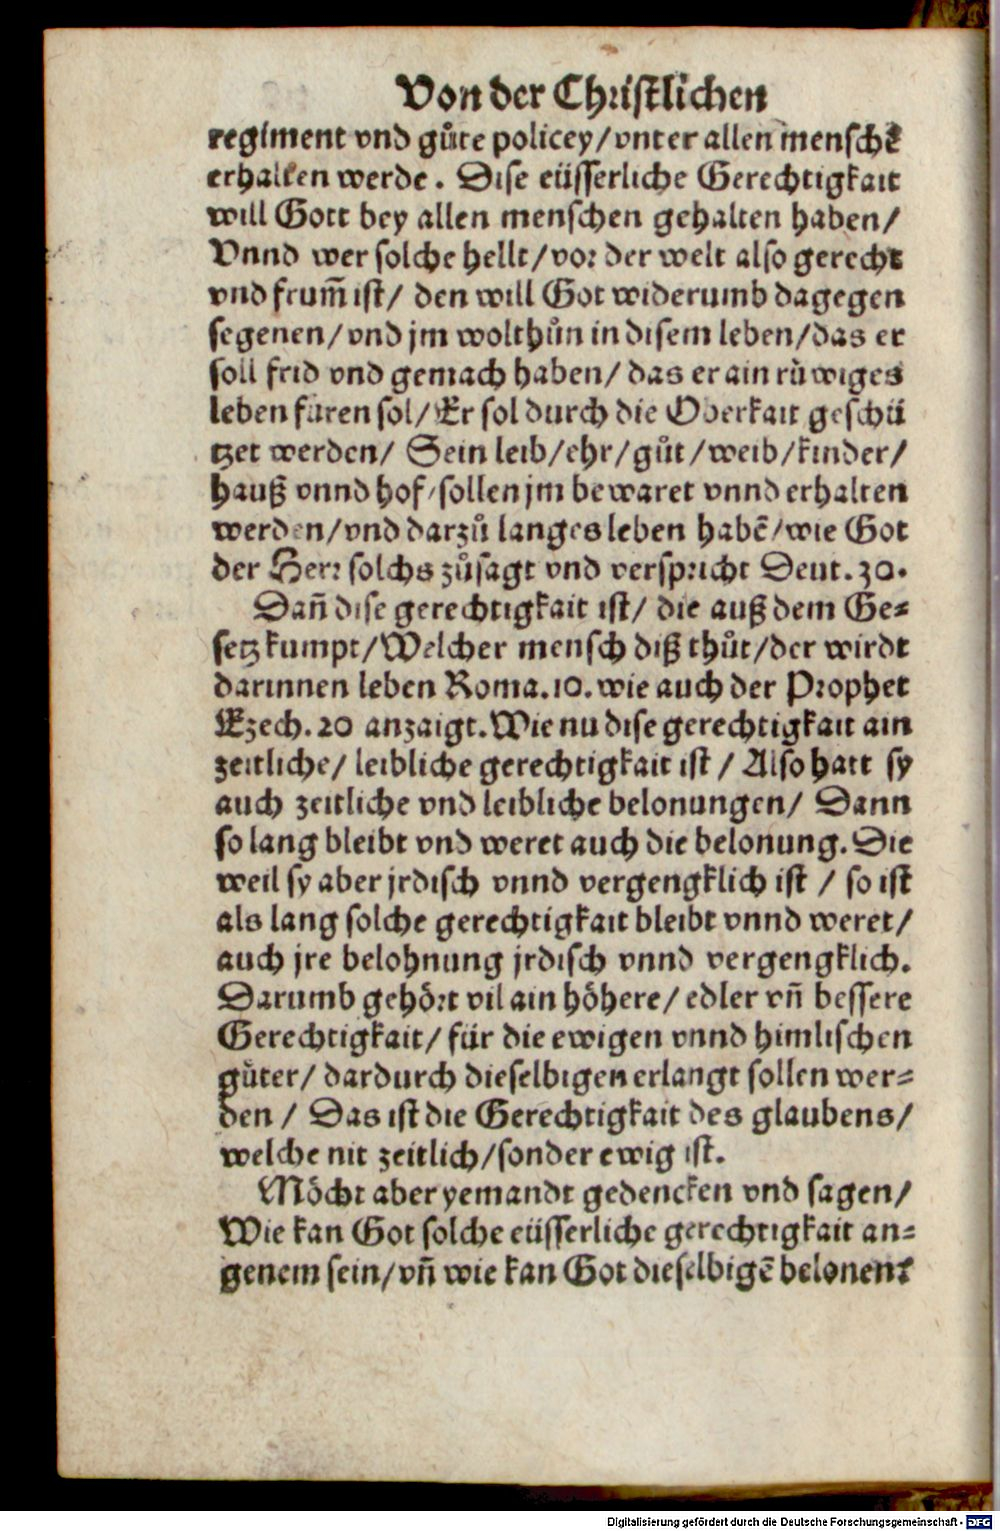 Von der Chriſtlichen
regiment vnd gůte policey/vnter allen menſchẽ
erhalten werde. Diſe eüſſerliche Gerechtigkait
will Gott bey allen menſchen gehalten haben/
Vnnd wer ſolche hellt/vor der welt alſo gerecht
vnd frum̃ iſt/ den will Got widerumb dagegen
ſegenen/vnd jm wolthůn in diſem leben/das er
ſoll frid vnd gemach haben/ das er ain růwiges
leben füren ſol/Er ſol durch die Oberkait geſchü
tzet werden/ Sein leib/ehr/gůt/weib/kinder/
hauß vnnd hof/ſollen jm bewaret vnnd erhalten
werden/vnd darzů langes leben habẽ/wie Got
der Herr ſolchs zůſagt vnd verſpricht Deut.30.
Dañ diſe gerechtigkait iſt/ die auß dem Ge⸗
ſetz kumpt/Welcher menſch diß thůt/der wirdt
darinnen leben Roma.10.wie auch der Prophet
Ezech.20 anzaigt.Wie nu diſe gerechtigkait ain
zeitliche/ leibliche gerechtigkait iſt / Alſo hatt ſy
auch zeitliche vnd leibliche belonungen/ Dann
ſo lang bleibt vnd weret auch die belonung.Die
weil ſy aber jrdiſch vnnd vergengklich iſt / ſo iſt
als lang ſolche gerechtigkait bleibt vnnd weret/
auch jre belohnung jrdiſch vnnd vergengklich.
Darumb gehört vil ain höhere/ edler vñ beſſere
Gerechtigkait/ für die ewigen vnnd himliſchen
gůter/ dardurch dieſelbigen erlangt ſollen wer⸗
den / Das iſt die Gerechtigkait des glaubens/
welche nit zeitlich/ſonder ewig iſt.
Möcht aber yemandt gedencken vnd ſagen/
Wie kan Got ſolche eüſſerliche gerechtigkait an⸗
genem ſein/vñ wie kan Got dieſelbigẽ belonen?
Digitalisierung gefördert durch die Deutsche Forschungsgemeinschaft - DFG